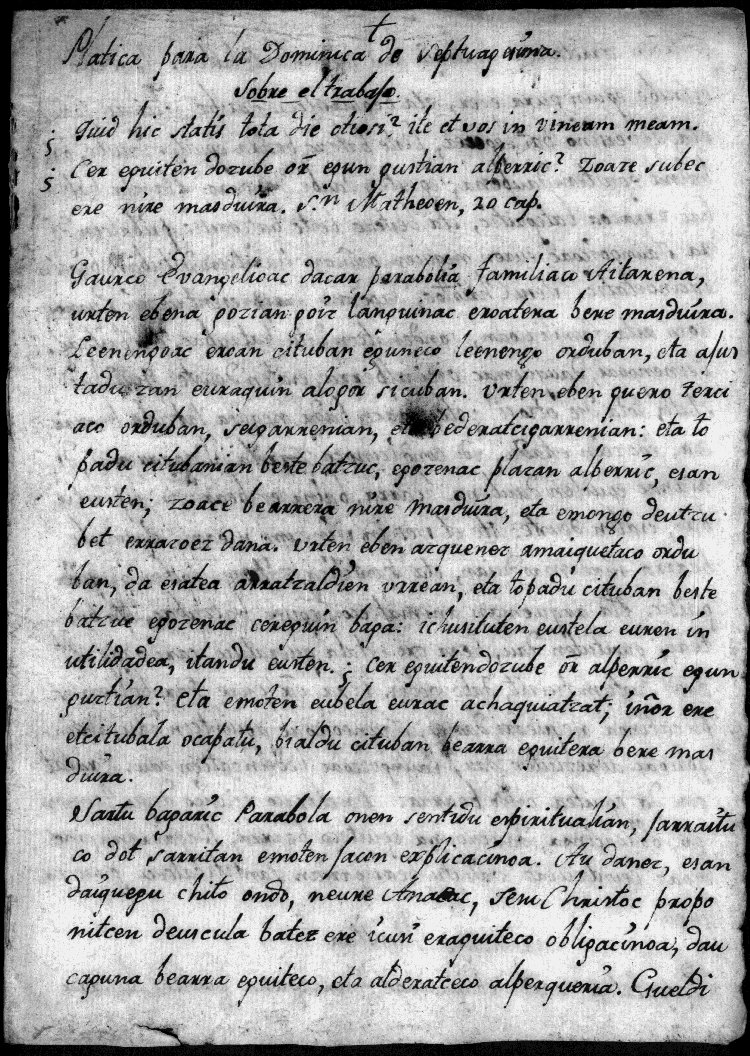 +
Platica para la Dominica de Septuagesima.
Sobre el trabajo.
¿Quid hic statis tota die otiosi? ite et vos in vineam meam.
¿Cer eguiten dozube or egun gustian alberric? Zoaze subec
ere nire masduira. S.n Matheoen, 20 cap.
Gaurco Evangelioac dacar parabolia familiaco Aitarena,
urten ebena gozian goiz languinac eroatera bere masduira.
Leenengoac eroan cituban eguneco leenengo orduban, eta ajus
tadu zan euraquin alogor sicuban. Urten eben guero Terci
aco orduban, seigarrenian, eta bederatcigarrenian: eta to
padu citubanian beste batzuc, egozenac plazan alberric, esan
eusten; zoace bearrera nire masduira, eta emongo deutzu
bet errazoez dana. Urten eben azquenez amaiquetaco ordu
ban, da esatea arratzaldien urrean, eta topadu cituban beste
batzuc egozenac cereguin baga: ichusituten eustela euren in
utilidadea, itandu eusten. ¿Cer eguitendozube or alperric egun
gustian? Eta emoten eubela eurac achaquiatzat; iñor ere
etcitubala ocupatu, bialdu cituban bearra eguitera bere mas
duira.
Sartu bagaric Parabola onen sentidu espiritualian, jarraitu
co dot sarritan emoten jacon explicacinoa. Au danez, esan
daiquegu chito ondo, neure Anaeac, Jesu Christoc propo
nitcen deuscula batez ere icusi eraguiteco obligacinoa, dau
caguna bearra eguiteco, eta alderatceco alperqueria. Gueldi